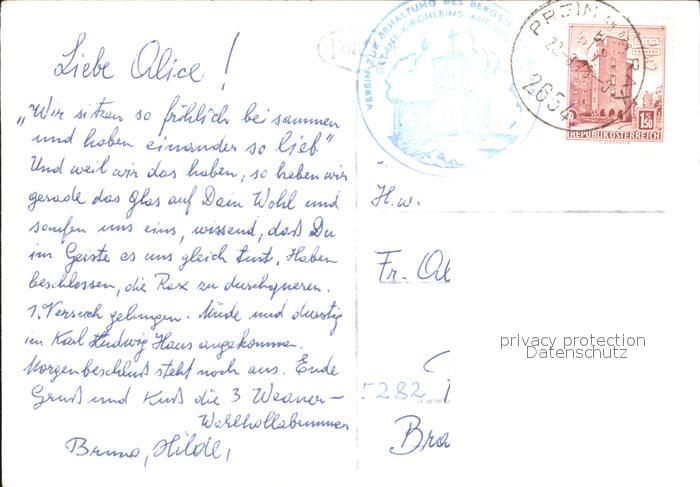 Liebe Alice!
„Wir sitzen so fröhlich beisammen
und haben einander so lieb"
Und weil wir das haben, so heben wir
gerade das Glas auf Dein Wohl und
saufen uns eins, wissend, daß Du
im Geiste es uns gleich tust. Haben
beschlossen, die Rax zu durchqueren.
1. Versuch gelungen. Müde und durstig
im Karl Ludwig Haus angekommen.
Morgenbeschluß steht noch aus. Ende
Gruß und Kuß die 3 Weaner-
Bruno, Hilde,
VEREIN ZUR ERHALTUNG DES
KIRCHLEINS AUF
PREIN
2654
1.50
REPUBLIK ÖSTERREICH
H.w.
Fr.
privacy protection
Datenschutz
5282
Bra